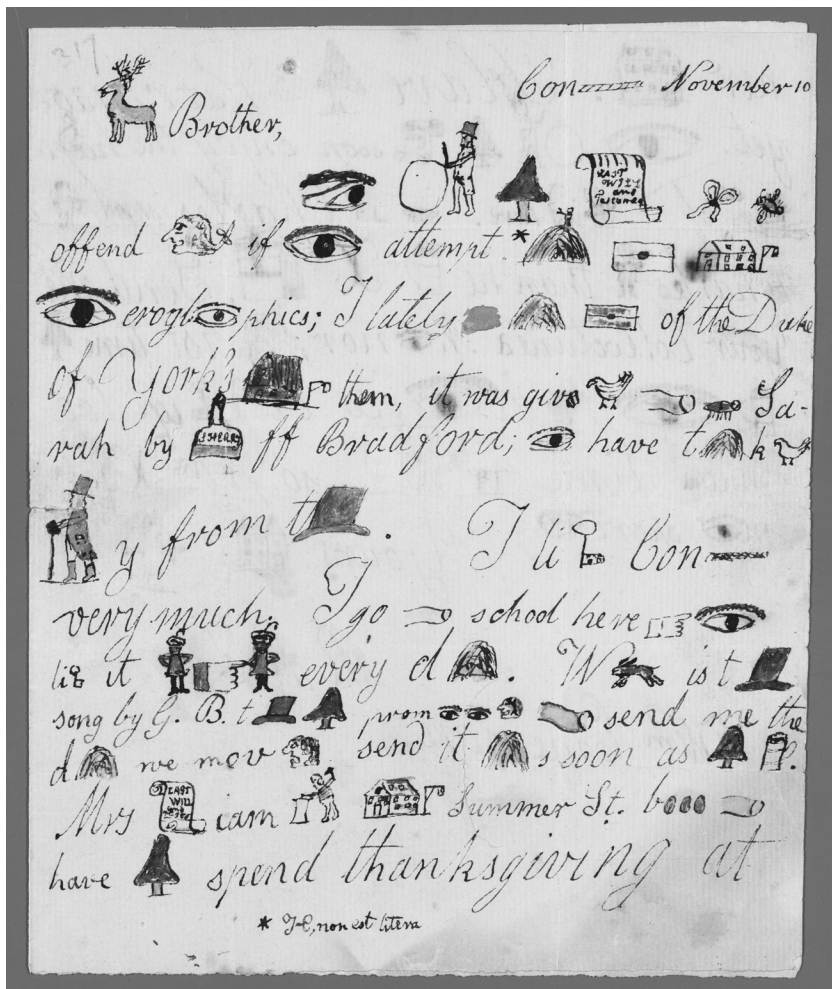 Con November 10
Brother,
LAST WILL and
offend if attempt. *
erogl phics; I lately of the Duke
of York's them, it was giv Sa-
rah by SHERRY ff Bradford; have t k
y from t . I li Con
very much. I go school here
li it every d . W is t
song by G. B. t prom send me the
d we mov send it s soon as ?.
Mrs LAST WILL and iam Summer St. b
have spend thanksgiving at
* H, non est litera